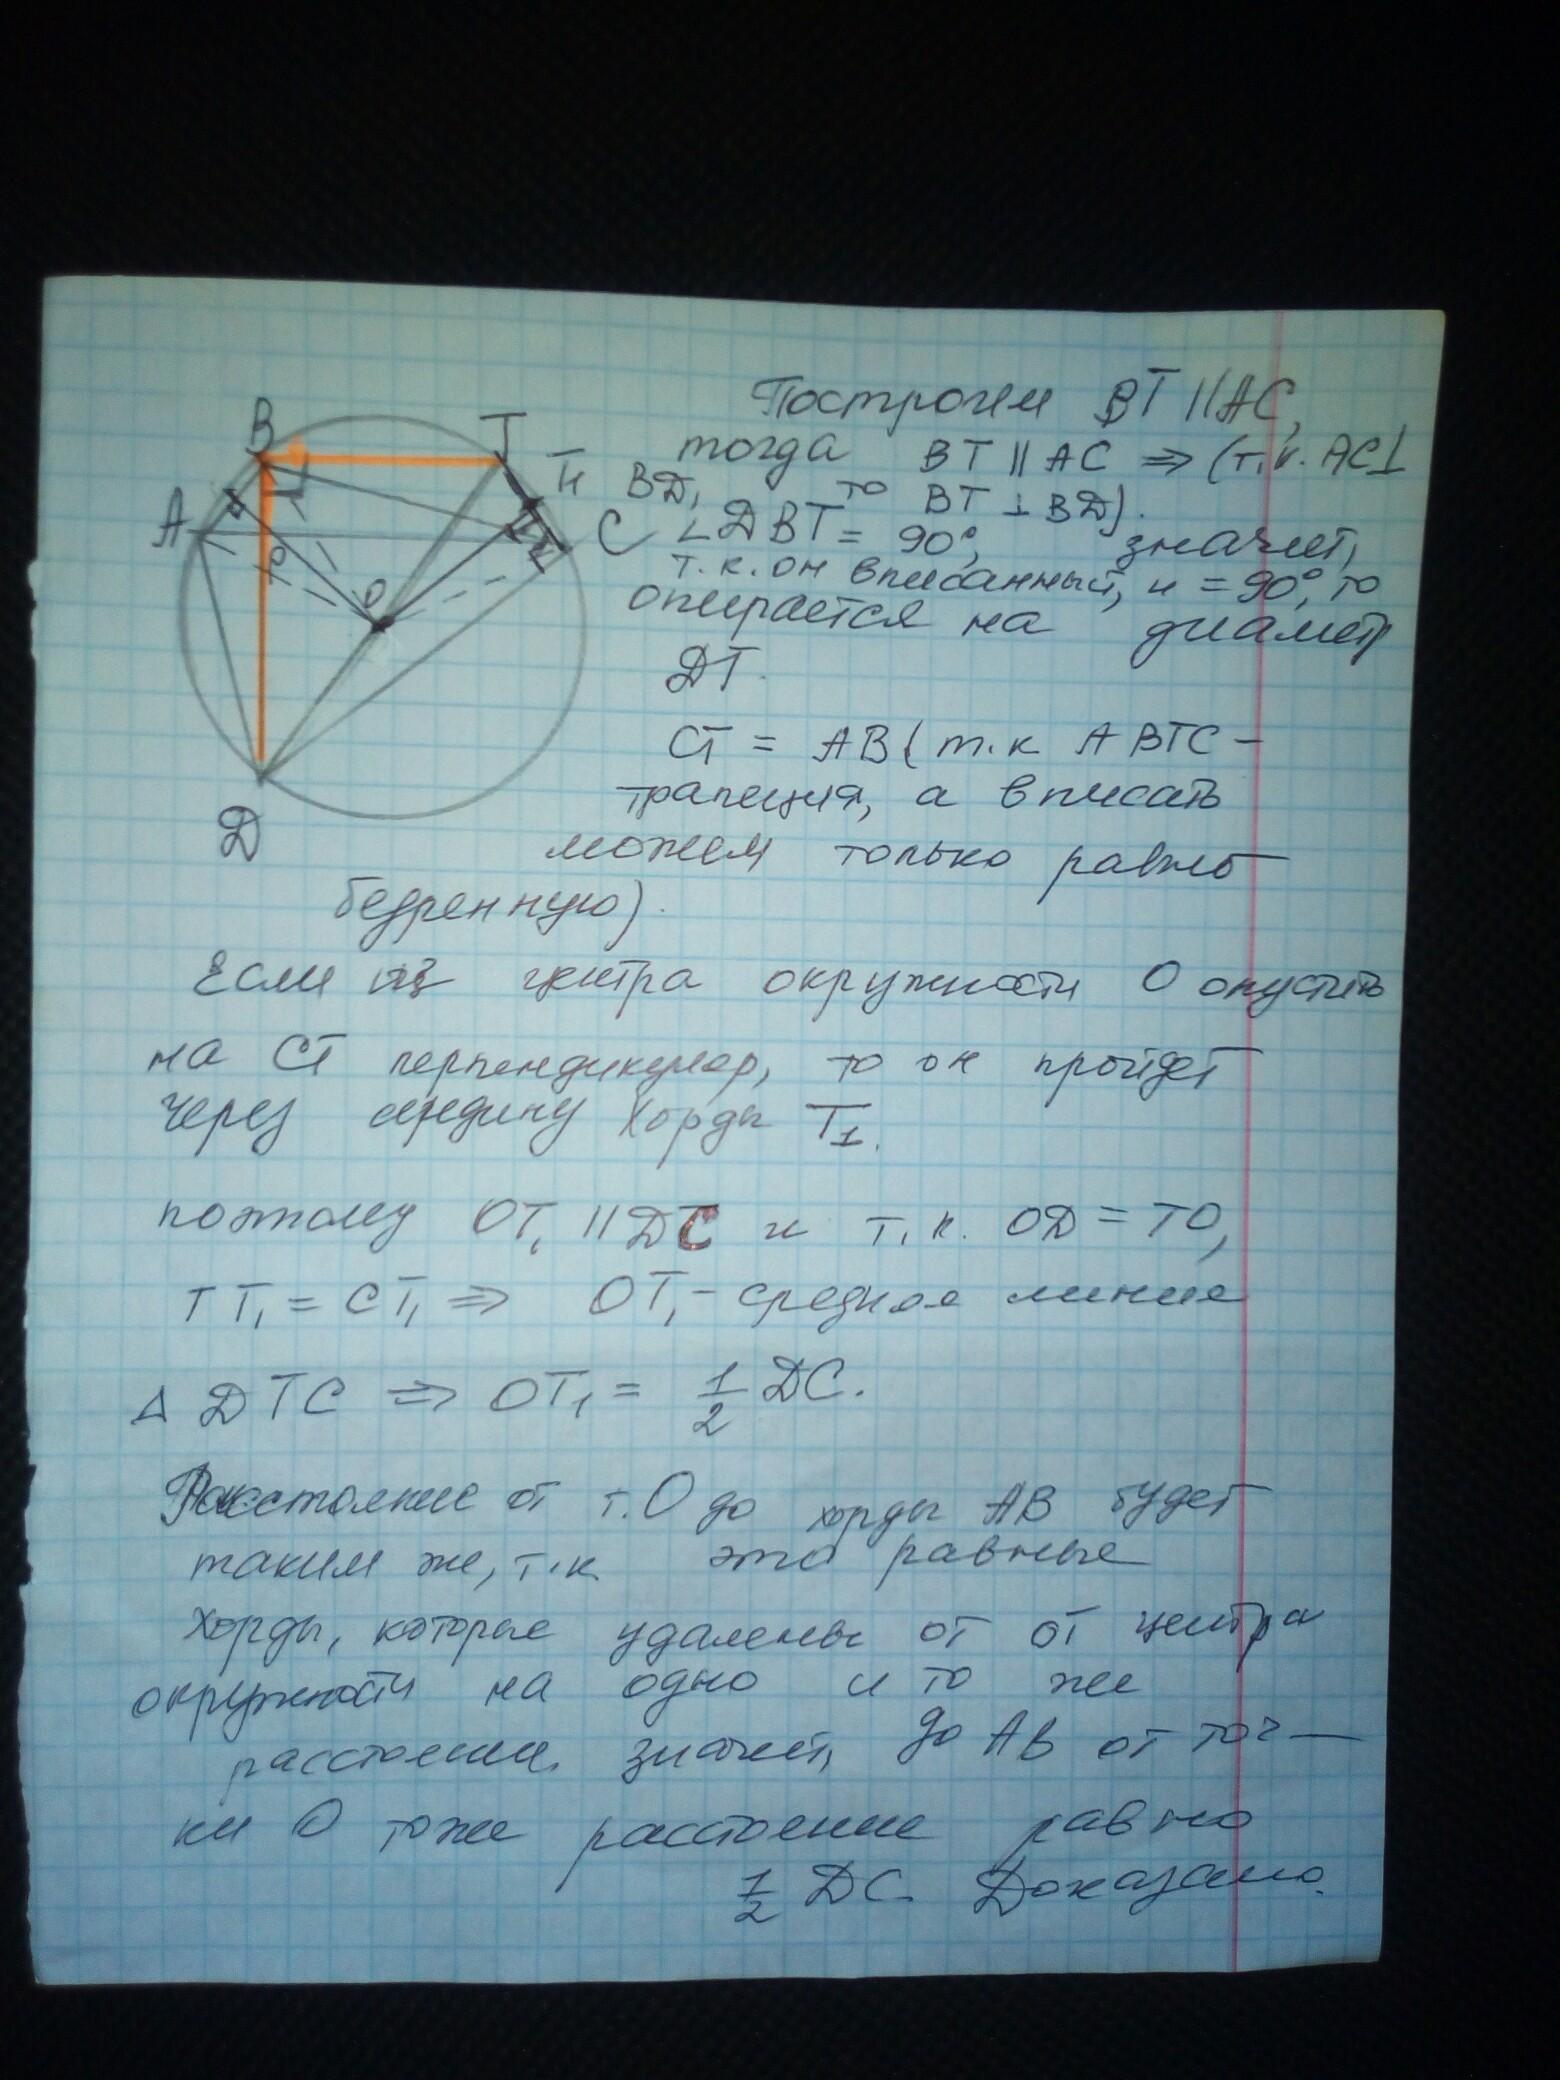 B
T
T₁
A
C
O
D
Построим BT || AC,
тогда BT || AC ⇒ (т.к. AC⊥
BD, то BT ⊥ BD).
∠DBT = 90°, значит,
т.к. он вписанный, и = 90°, то
опирается на диаметр
DT.
CT = AB (т.к ABTC –
трапеция, а вписать
можем только равно
бедренную).
Если из центра окружности O опустить
на CT перпендикуляр, то он пройдет
через середину хорды T₁.
поэтому OT₁ || DC и т.к. OD = TO,
TT₁ = CT₁ ⇒ OT₁ – средняя линия
Δ DTC ⇒ OT₁ = 1/2 DC.
Расстояние от т. O до хорды AB будет
таким же, т.к. это равные
хорды, которые удалены от от центра
окружности на одно и то же
расстояние. значит, до AB от точ –
ки O тоже расстояние равно
1/2 DC. Доказано.